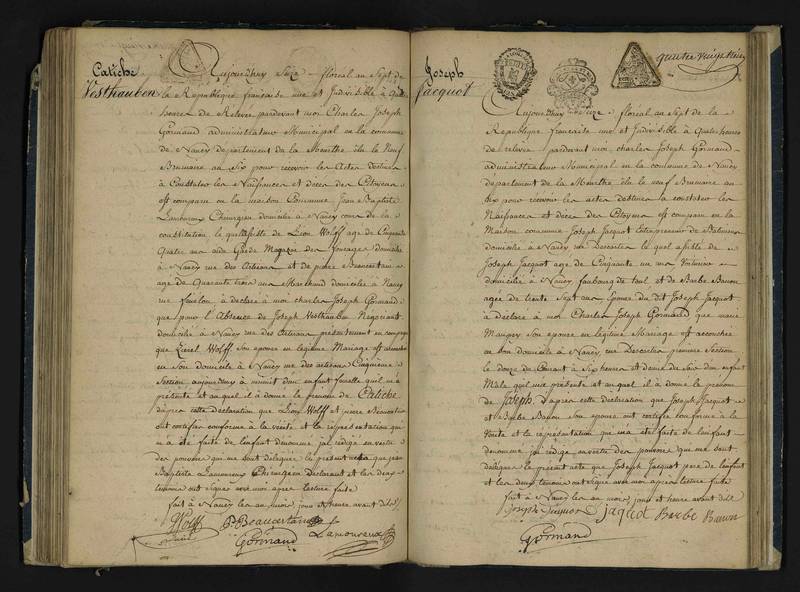 Catiche
Vesthauben
Aujourd'huy Seize floréal an Sept de
la Republique française une et Indivisible à quatre
heures de Relevée pardevant moi Charles Joseph
Gormand administrateur Municipal en la commune
de Nancy Departement de la Meurthe élu le neuf
Brumaire an Six pour recevoir les Actes destinés
à Constater les Naissances et décès des Citoyens
est comparu en la maison Commune Jean Baptiste
Lamoureux Chirurgien domicilié à Nancy cour de la
constitution le quel assisté de Lion Wolff age de Cinquante
Quatre ans aide Garde Magazin des fourages domicilié
à Nancy rue des Artisans et de pierre Beaucertain
age de Quarante trois ans Marchand domicilié à Nancy
rue a déclaré à moi charles Joseph Gormand
que pour l'Absence de Joseph Vesthauben Negociant
domicilié à Nancy rue des Artisans présentement en campagne
que Wolff Son epouse en legitime Mariage est accouchée
en Son domicile à Nancy rue des artisans Cinquieme
Section aujourdhuy à minuit d'un enfant femelle quil m'a
présenté et auquel il à donné le prénom de Catiche
d'après cette déclaration que Lion Wolff et pierre Beaucertain
ont certifiée conforme à la vérité et la représentation qui
m'a été faite de l'enfant dénommé jai rédigé en vertu
des pouvoirs qui me sont délégués le présent acte que jean
Baptiste Lamoureux Chirurgien Declarant et les deux
temoins ont signé avec moi apres lecture faite
fait à Nancy les an mois, jour et heure avant dits
Wolff P. Beaucertain Lamoureux
Gormand
Joseph
Jacquot
quatre vingt
Aujourd'huy Seize floréal an Sept de la
Republique francaise une et Indivisible à Quatre heures
de relevée pardevant moi charles Joseph Gormand
administrateur Municipal en la commune de Nancy
departement de la Meurthe élu le neuf Brumaire an
Six pour recevoir les actes destinés à constater les
Naissances et décès des Citoyens est comparu en la
Maison commune Joseph Jacquot Entrepreneur de Batiments
domicilié à Nancy rue Descartes le quel assisté de
Joseph Jacquot age de Cinquante un ans Voiturier
domicilié à Nancy faubourg de toul et de Barbe Baron
agée de trente Sept ans épouse du dit Joseph Jacquot
à Déclaré à moi Charles Joseph Gormand que marie
Mauger Son epouse en légitime Mariage est accouchée
en Son domicile à Nancy rue Descartes premiere Section
le douze du Courant à Six heures et demie du soir d'un enfant
Male quil m'a présenté et au quel il à donné le prénom
de Joseph. D'apres cette déclaration que Joseph Jacquot
et Barbe Baron Son epouse ont certifiée conforme à la
Vérité et la représentation qui m'a été faite de l'enfant
dénommé jai rédigé en vertu des pouvoirs qui me sont
délégués le présent acte que Joseph Jacquot pere de l'enfant
et les deux temoins ont signé avec moi apres lecture faite
fait à Nancy les an mois, jour et heure avant dits
Joseph Jacquot Jaquot Barbe Baron
Gormand